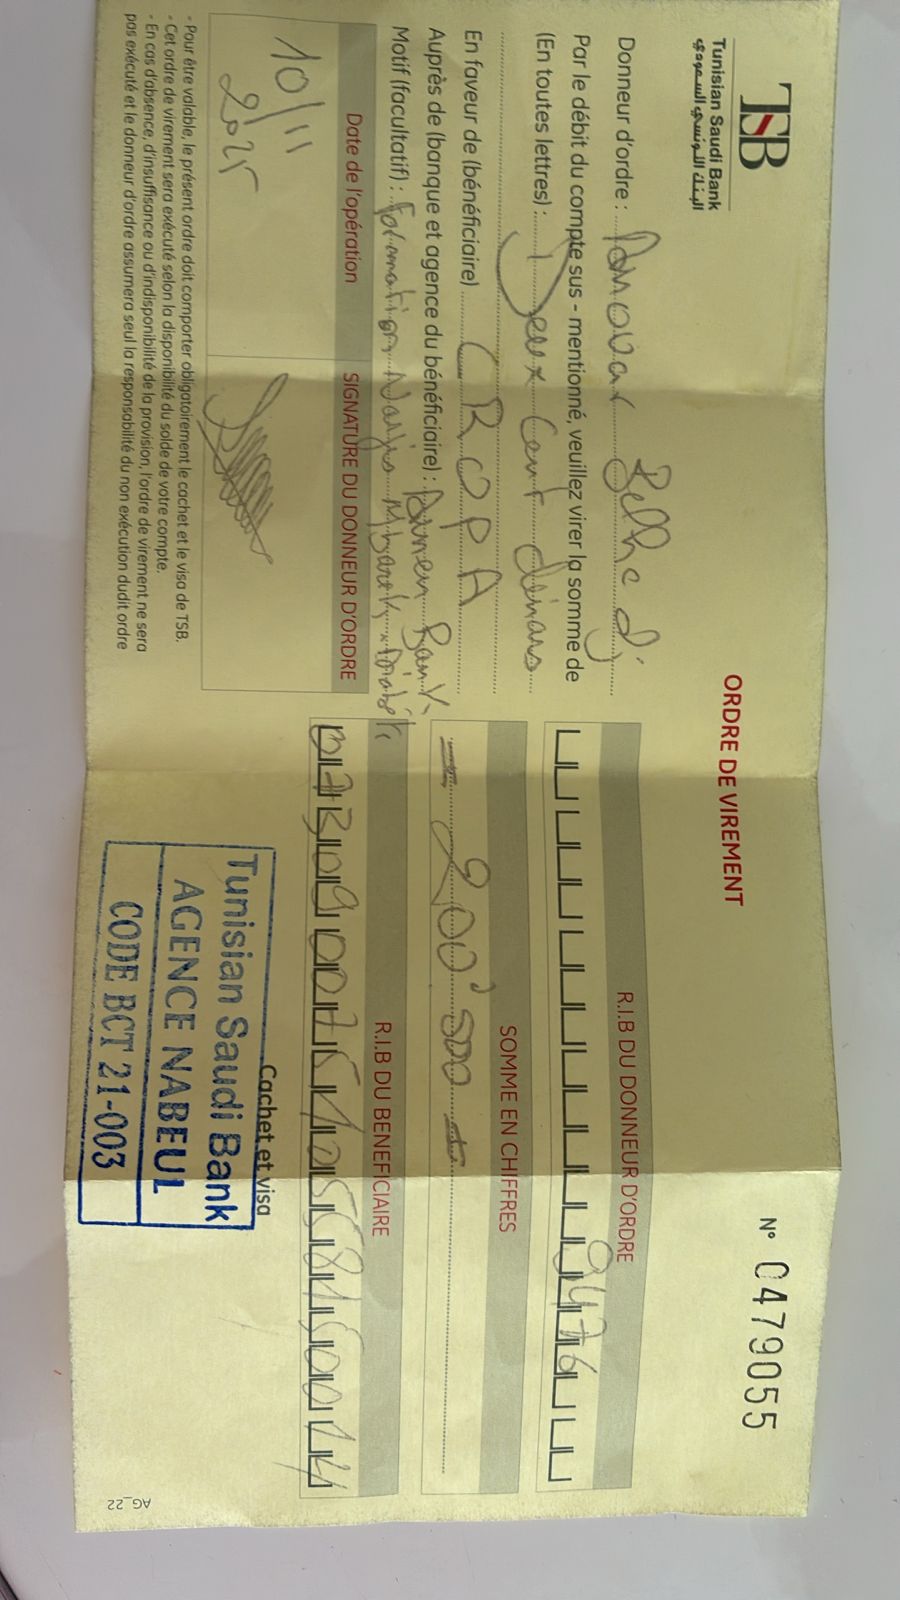 TSB
Tunisian Saudi Bank
البنك التونسي السعودي
ORDRE DE VIREMENT
N° 0479055
Donneur d'ordre :
Par le débit du compte sus - mentionné, veuillez virer la somme de
(En toutes lettres) : Deux Cent dinars
En faveur de (bénéficiaire) CROPA
Auprès de (banque et agence du bénéficiaire) : Amen Bank
Motif (facultatif) : formation Narjis
R.I.B DU DONNEUR D'ORDRE
9476
SOMME EN CHIFFRES
R.I.B DU BENEFICIAIRE
Date de l'opération
SIGNATURE DU DONNEUR D'ORDRE
10/11
2025
Cachet et visa
Tunisian Saudi Bank
AGENCE NABEUL
CODE BCT 21-003
- Pour être valable, le présent ordre doit comporter obligatoirement le cachet et le visa de TSB.
- Cet ordre de virement sera exécuté selon la disponibilité du solde de votre compte.
- En cas d'absence, d'insuffisance ou d'indisponibilité de la provision, l'ordre de virement ne sera
pas exécuté et le donneur d'ordre assumera seul la responsabilité du non exécution dudit ordre
AG_22